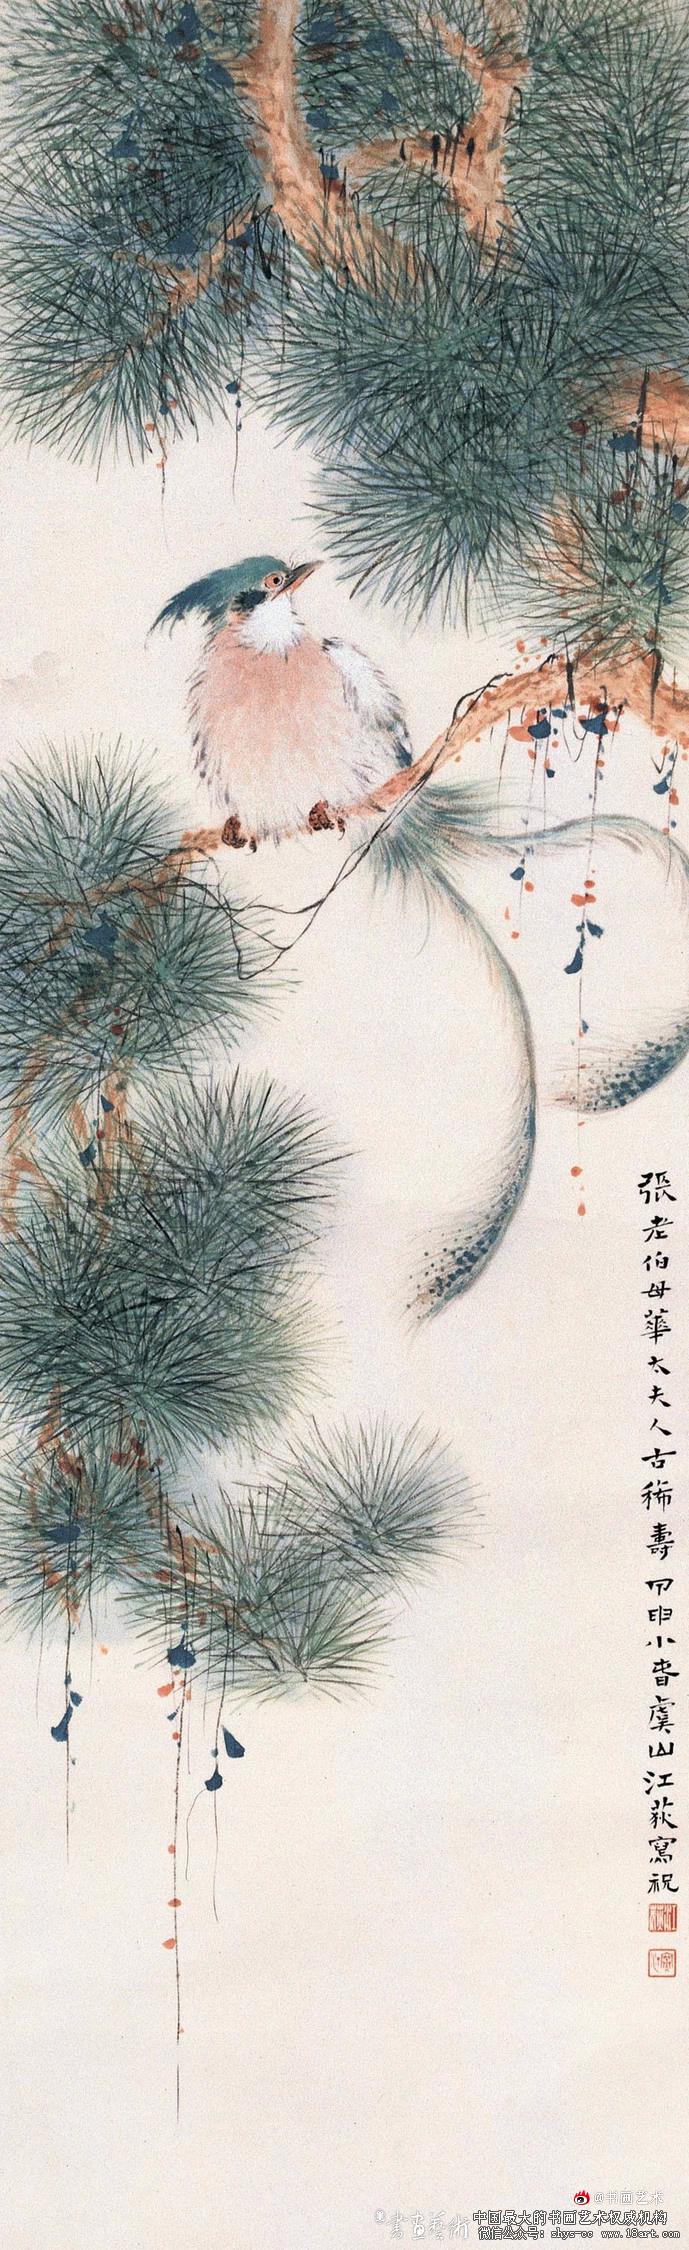 張老伯母華太夫人古稀壽甲申小春虞山江荻寫祝
@书画艺术
書画藝術
中国最大的书画艺术权威机构
微信公众号：shys-cc www.18art.com